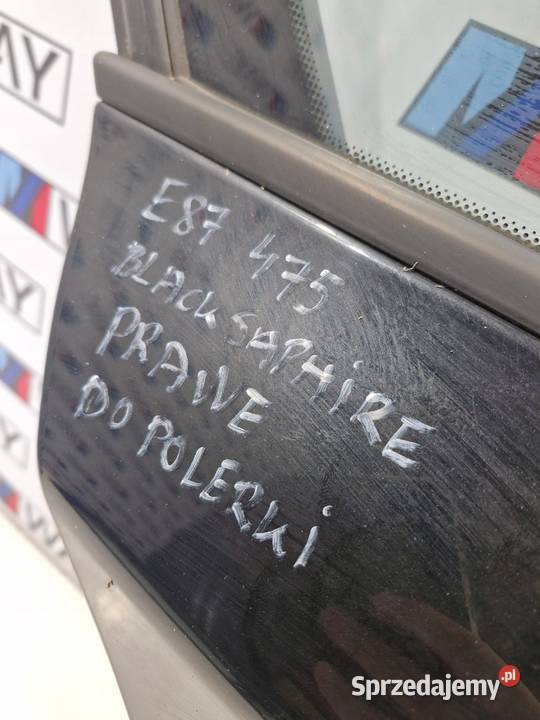 E87 475
BLACK SAPHIRE
PRAWE
DO POLERKI
WAY
AY
WA
Sprzedajemy.pl